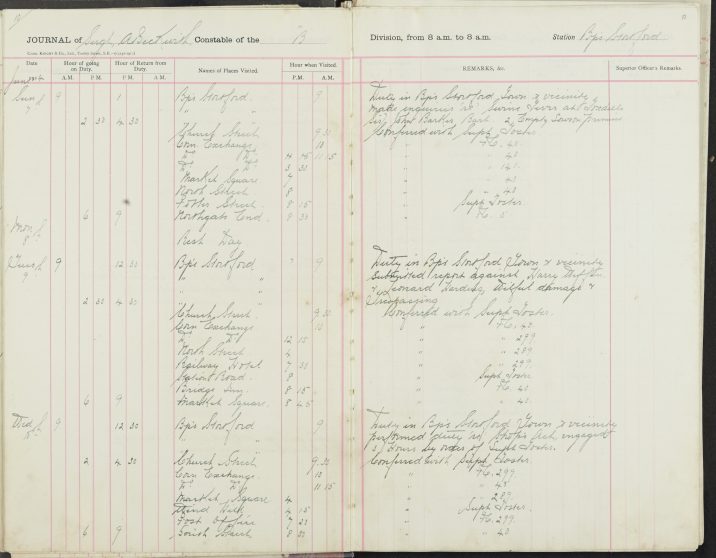 JOURNAL of Sergt. A Beckwith Constable of the "B" Division, from 8 a.m. to 8 a.m. Station Bps Stortford
Date Hour of going on Duty. Hour of Return from Duty. Names of Places Visited. Hour when Visited. REMARKS, &c. Superior Officer's Remarks.
A.M. P.M. P.M. A.M. P.M. A.M.
Sun 7 9 1 Bps Stortford. 9 Duty in Bps Stortford Town & vicinity
make enquiries re Swine Fever at
2 30 4 30 2 Empty Premises
Church Street 9 30 Conferred with Supt Foster.
Corn Exchange 10 " P.C. 43
" " 4 45 11 15 " 43
" " 5 30 " 141
Market Square " 43
North Street 8 " 43
Street 8 15 Supt Foster
6 9 Northgate End. 8 30 " P.C. 5
Mon 8 Rest Day
Tues 9 9 12 30 Bps Stortford 9 Duty in Bps Stortford Town & vicinity
" " Submitted report against Harry
" " & Leonard Harding, Wilful damage &
2 30 4 30 " Trespassing
Church Street. 9 30 Conferred with Supt Foster.
Corn Exchange 10 " P.C. 43
" " 12 15 " 299
North Street 4 " 299
Railway Hotel 30 " 299
Station Road. 8 Supt Foster
Bridge Inn 8 15 P.C. 43
6 9 Market Square. 8 45 " 43
Wed 10 9 12 30 Bps Stortford 9 Duty in Bps Stortford Town & vicinity
" " performed duty re Shops Act, engaged
Hours by order of Supt Foster.
2 4 30 Church Street 9 30 Conferred with Supt Foster.
Corn Exchange. 10 " P.C. 299
" " 11 15 " 43
Market Square 4 " 299
Wind Hill 4 15 Supt Foster.
Post Office 7 P.C. 299.
6 9 South Street 8 30 " 43